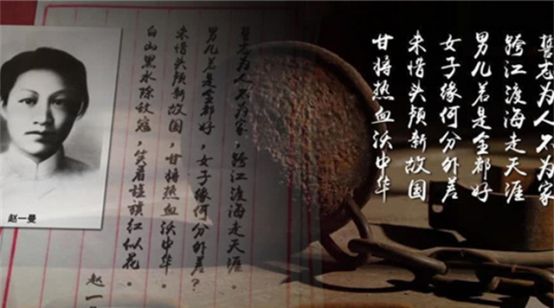 誓志为人不为家
跨江渡海走天涯
男儿若是全都好
女子缘何分外差
未惜头颅新故国
甘将热血沃中华
誓志为人不为家，跨江渡海走天涯。
男儿若是全都好，女子缘何分外差？
未惜头颅新故国，甘将热血沃中华。
白山黑水除敌寇，笑看旌旗红似花。
赵一
赵一曼